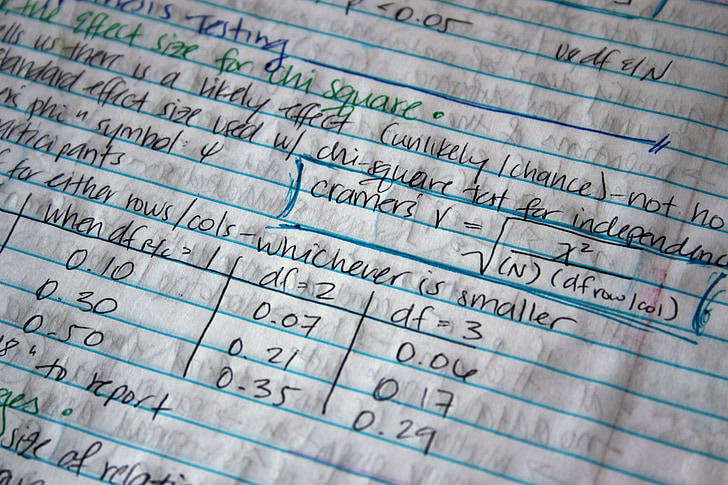 p < 0.05
Testing
use df & N
the effect size for chi square.
us there is a likely effect (unlikely/chance) - not
standard effect size used w/ chi-square test for independence
phi " symbol: φ
participants
cramers' V = √ χ² / (N) (df row/col)
for either rows/cols - whichever is smaller
when df r/c = 1 df = 2 df = 3
0.10 0.07 0.06
0.30 0.21 0.17
0.50 0.35 0.29
" to report
size of